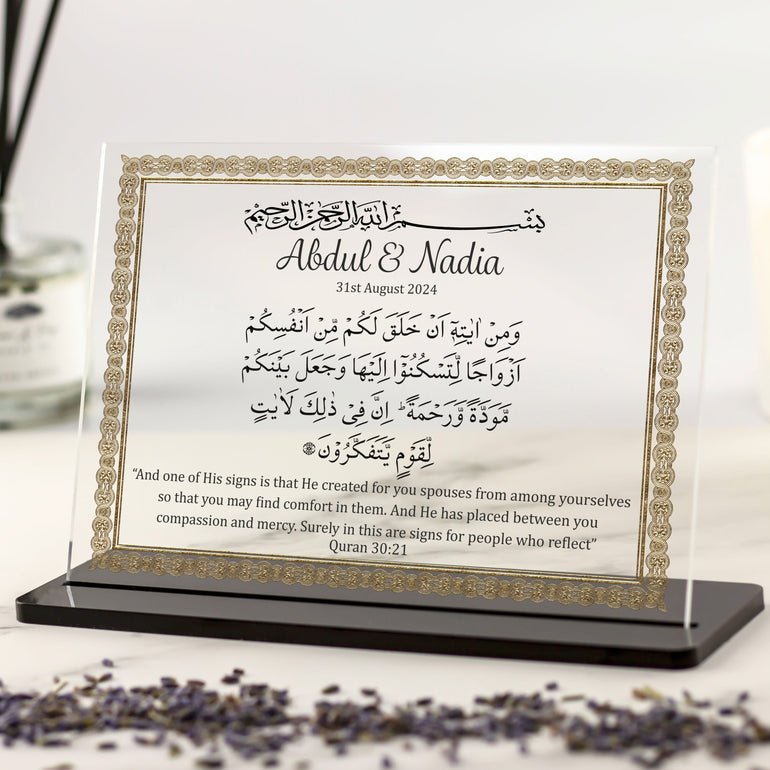 بِسْمِ اللّٰهِ الرَّحْمٰنِ الرَّحِيْمِ
Abdul & Nadia
31st August 2024
وَمِنْ اٰيٰتِهٖٓ اَنْ خَلَقَ لَكُمْ مِّنْ اَنْفُسِكُمْ
اَزْوَاجًا لِّتَسْكُنُوْٓا اِلَيْهَا وَجَعَلَ بَيْنَكُمْ
مَّوَدَّةً وَّرَحْمَةً ؕ اِنَّ فِيْ ذٰلِكَ لَاٰيٰتٍ
لِّقَوْمٍ يَّتَفَكَّرُوْنَ
“And one of His signs is that He created for you spouses from among yourselves
so that you may find comfort in them. And He has placed between you
compassion and mercy. Surely in this are signs for people who reflect”
Quran 30:21